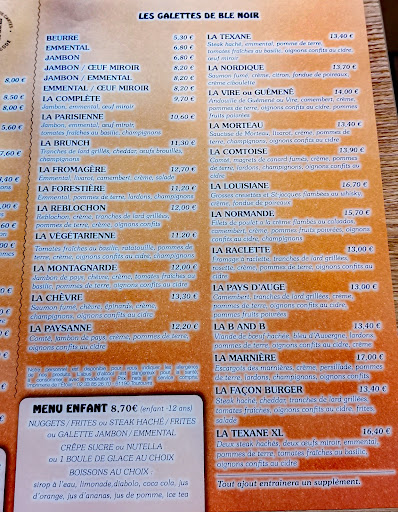 LES GALETTES DE BLE NOIR
BEURRE 5,30 €
EMMENTAL 6,80 €
JAMBON 6,80 €
JAMBON / ŒUF MIROIR 8,20 €
JAMBON / EMMENTAL 8,20 €
EMMENTAL / ŒUF MIROIR 8,20 €
LA COMPLÈTE 9,70 €
Jambon, emmental, œuf miroir
LA PARISIENNE 10,60 €
Jambon, emmental, œuf miroir,
tomates fraîches au basilic, champignons
LA BRUNCH 11,30 €
Tranches de lard grillés, cheddar, œufs brouillés,
champignons
LA FROMAGÈRE 11,70 €
Emmental, livarot, camembert, crème, salade
LA FORESTIÈRE 11,20 €
Emmental, pommes de terre, lardons, champignons
LA REBLOCHON 12,00 €
Reblochon, crème, tranches de lard grillées,
pommes de terre, crème, oignons confits
LA VÉGÉTARIENNE 11,20 €
Tomates fraîches au basilic, ratatouille, pommes
de terre, champignons, oignons confits au cidre
LA MONTAGNARDE 12,00 €
Jambon de pays, chèvre, crème, tomates fraîches au
basilic, pommes de terre, oignons confits au cidre
LA CHÈVRE 13,30 €
Saumon fumé, chèvre, épinards, crème,
champignons, oignons confits au cidre
LA PAYSANNE 12,20 €
Comté, jambon de pays, crème, pommes de terre,
oignons confits au cidre
MENU ENFANT 8,70€ (enfant -12 ans)
NUGGETS / FRITES ou STEAK HACHÉ / FRITES
ou GALETTE JAMBON / EMMENTAL
CRÊPE SUCRE ou NUTELLA
ou 1 BOULE DE GLACE AU CHOIX
BOISSONS AU CHOIX :
sirop à l'eau, limonade,diabolo, coca cola, jus
d'orange, jus d'ananas, jus de pomme, ice tea
LA TEXANE 13,40 €
Steak haché, emmental, pomme de terre,
tomates fraîches, oignons confits au cidre,
œuf miroir
LA NORDIQUE 13,70 €
Saumon fumé, crème, citron, fondue de poireaux,
crème ciboulette
LA VIRE ou GUÉMENÉ 14,00 €
Andouille de Guémené ou Vire, camembert, crème,
pommes de terre, oignons confits au cidre, pommes
fruits poirées
LA MORTEAU 13,40 €
Saucisse de Morteau, livarot, crème, pommes de
terre, oignons confits au cidre
LA COMTOISE 13,90 €
Comté, magrets de canard fumés, crème, pommes
de terre, lardons, champignons, oignons confits
LA LOUISIANE 16,70 €
Grosses crevettes et St-Jacques flambées au whisky,
crème, fondue de poireaux
LA NORMANDE 15,70 €
Filets de poulet à la crème flambés au calvados,
camembert, crème, pommes fruits poirées, oignons
confits au cidre, champignons
LA RACLETTE 13,00 €
Fromage à raclette, tranches de lard grillées,
rosette, crème, pommes de terre, oignons confits
au cidre
LA PAYS D'AUGE 13,00 €
Camembert, tranches de lard grillées, crème,
pommes de terre, oignons confits au cidre,
pommes fruits poirées
LA B AND B 13,40 €
Viande de bœuf hachée, bleu d'Auvergne, lardons,
pommes de terre, oignons confits au cidre, crème
LA MARNIÈRE 17,00 €
Escargots des marnières, crème, persillade, pommes
de terre, lardons, champignons, oignons confits
LA FAÇON BURGER 13,40 €
Steak haché, cheddar, tranches de lard grillées,
tomates fraîches, oignons confits au cidre, frites,
salade
LA TEXANE XL 16,40 €
Deux steak hachés, deux œufs miroir, emmental,
pommes de terre, tomates fraîches au basilic,
oignons confits au cidre
Tout ajout entraînera un supplément.